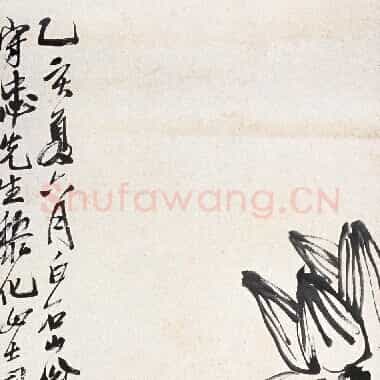 乙亥夏六月白石山翁
守忠先生
Shufawang.CN